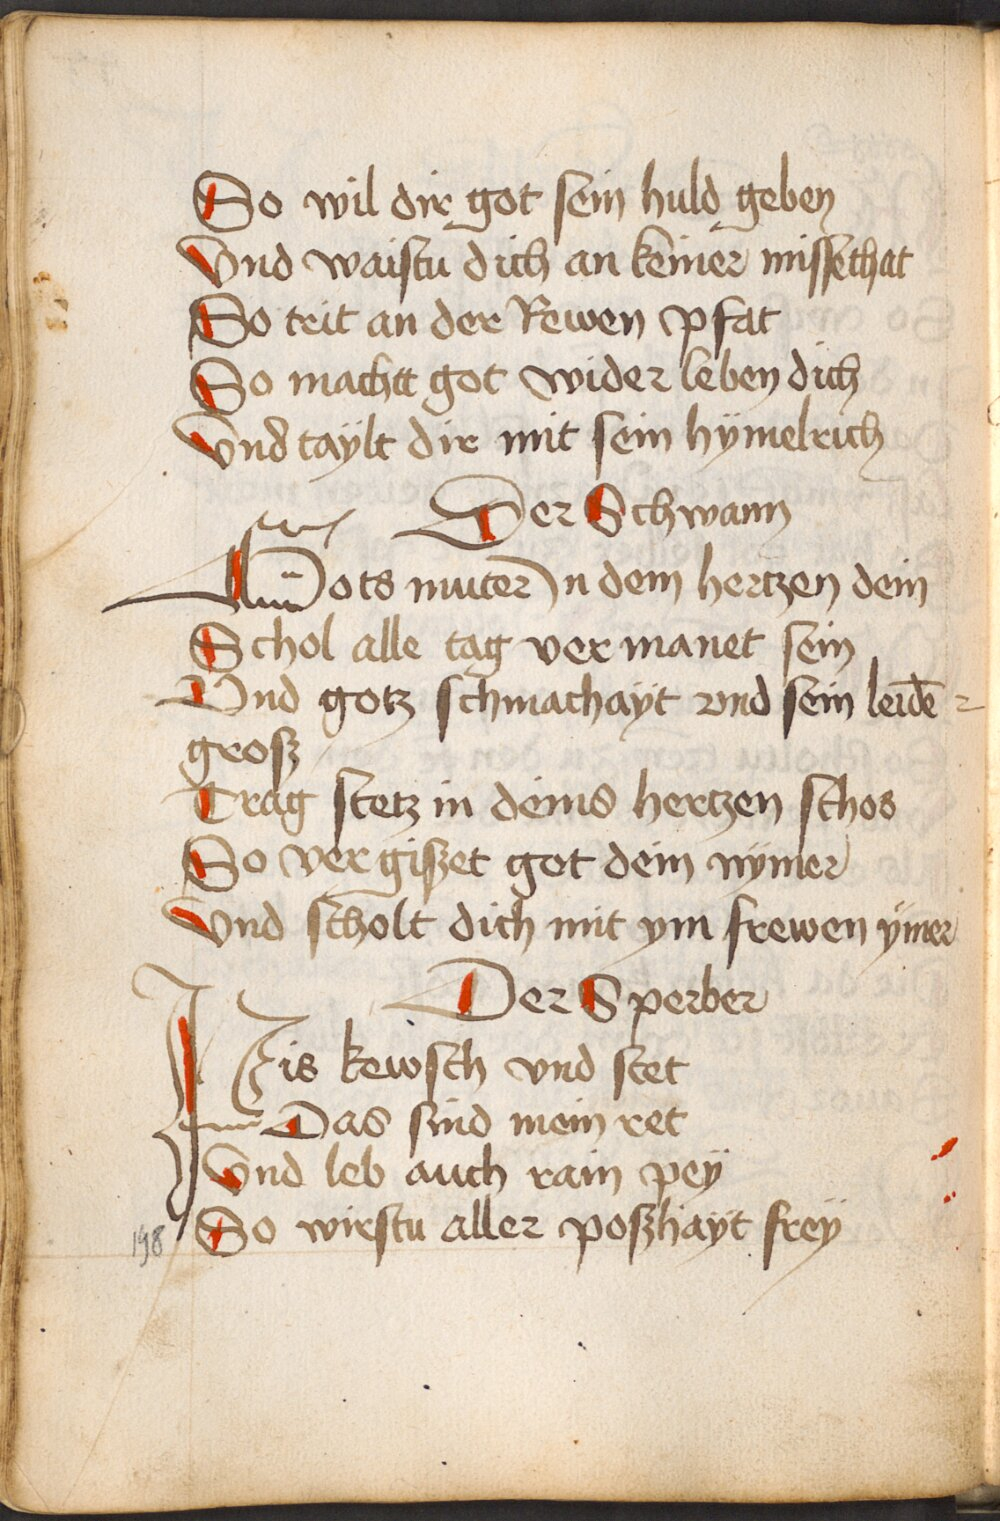 So wil dir got sein huld geben
Vnd waistu dich an keiner missethat
So trit an der Rewen pfat
So machtt got wider leben dich
Vnd taÿlt dir mit sein hÿmelrich
Der Schwann
Gots muter Jn dem hertzen dein
Schol alle tag ver manet sein
Vnd gotz schmachaÿt vnd sein leidē
grosz
Trag stetz in deins hertzen schos
So ver giszet got dein nÿmer
Vnd scholt dich mit ym frewen ÿmer
Der Sperber
Bis kewsch vnd stet
Das sind mein ret
Vnd leb auch rain peÿ
So wirstu aller poszhaÿt freÿ
198